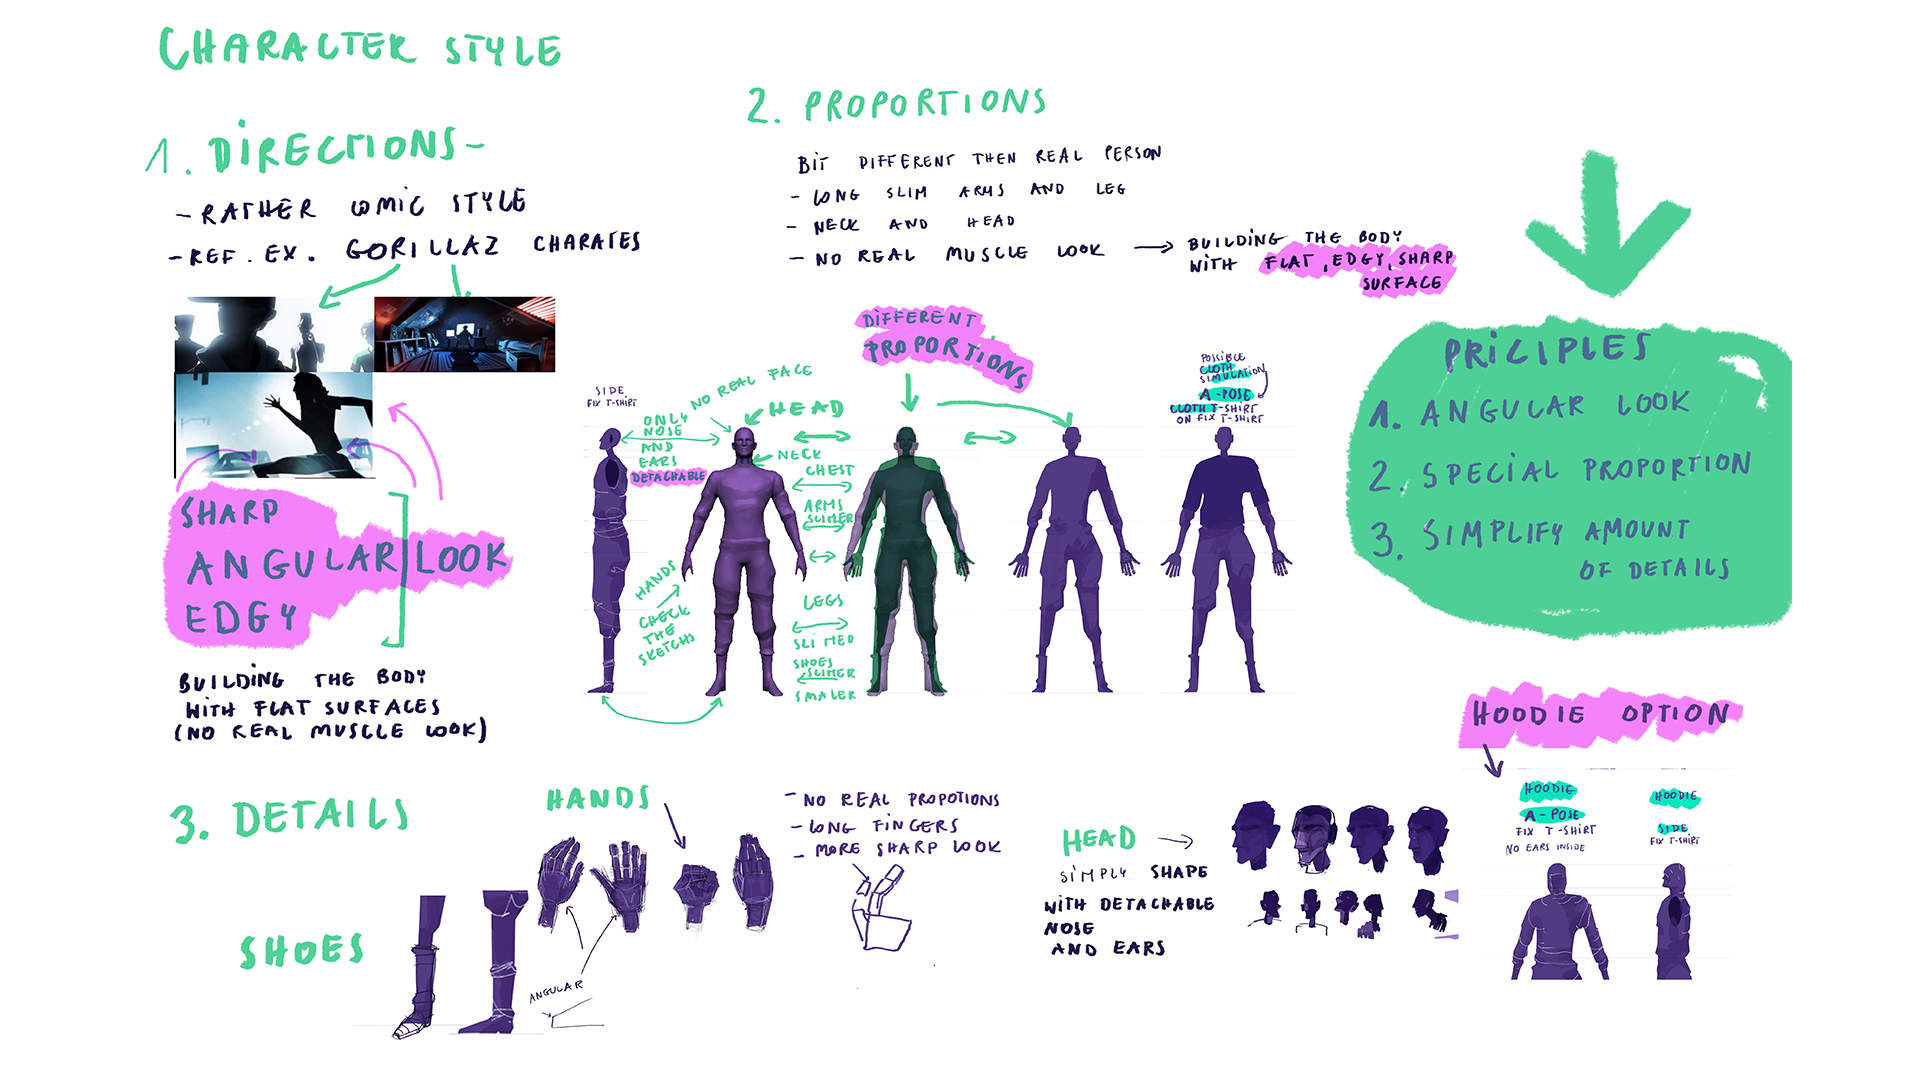 CHARACTER STYLE
1. DIRECTIONS-
- RATHER COMIC STYLE
- REF. EX. GORILLAZ CHARATES
SHARP
ANGULAR LOOK
EDGY
BUILDING THE BODY
WITH FLAT SURFACES
(NO REAL MUSCLE LOOK)
2. PROPORTIONS
BIT DIFFERENT THEN REAL PERSON
- LONG SLIM ARMS AND LEG
- NECK AND HEAD
- NO REAL MUSCLE LOOK
BUILDING THE BODY
WITH FLAT, EDGY, SHARP
SURFACE
DIFFERENT
PROPORTIONS
SIDE
FIX T-SHIRT
NO REAL FACE
ONLY
NOSE
AND
EARS
DETACHABLE
HEAD
NECK
CHEST
ARMS
SLIMER
HANDS
CHECK
THE
SKETCHS
LEGS
SLIMED
SHOES
SLIMER
SMALER
POSSIBLE
CLOTH
SIMULATION
A-POSE
CLOTH T-SHIRT
ON FIX T-SHIRT
PRICIPLES
1. ANGULAR LOOK
2. SPECIAL PROPORTION
3. SIMPLIFY AMOUNT
OF DETAILS
3. DETAILS
HANDS
- NO REAL PROPOTIONS
- LONG FINGERS
- MORE SHARP LOOK
SHOES
ANGULAR
HEAD
SIMPLY SHAPE
WITH DETACHABLE
NOSE
AND EARS
HOODIE OPTION
HOODIE
A-POSE
FIX T-SHIRT
NO EARS INSIDE
HOODIE
SIDE
FIX T-SHIRT